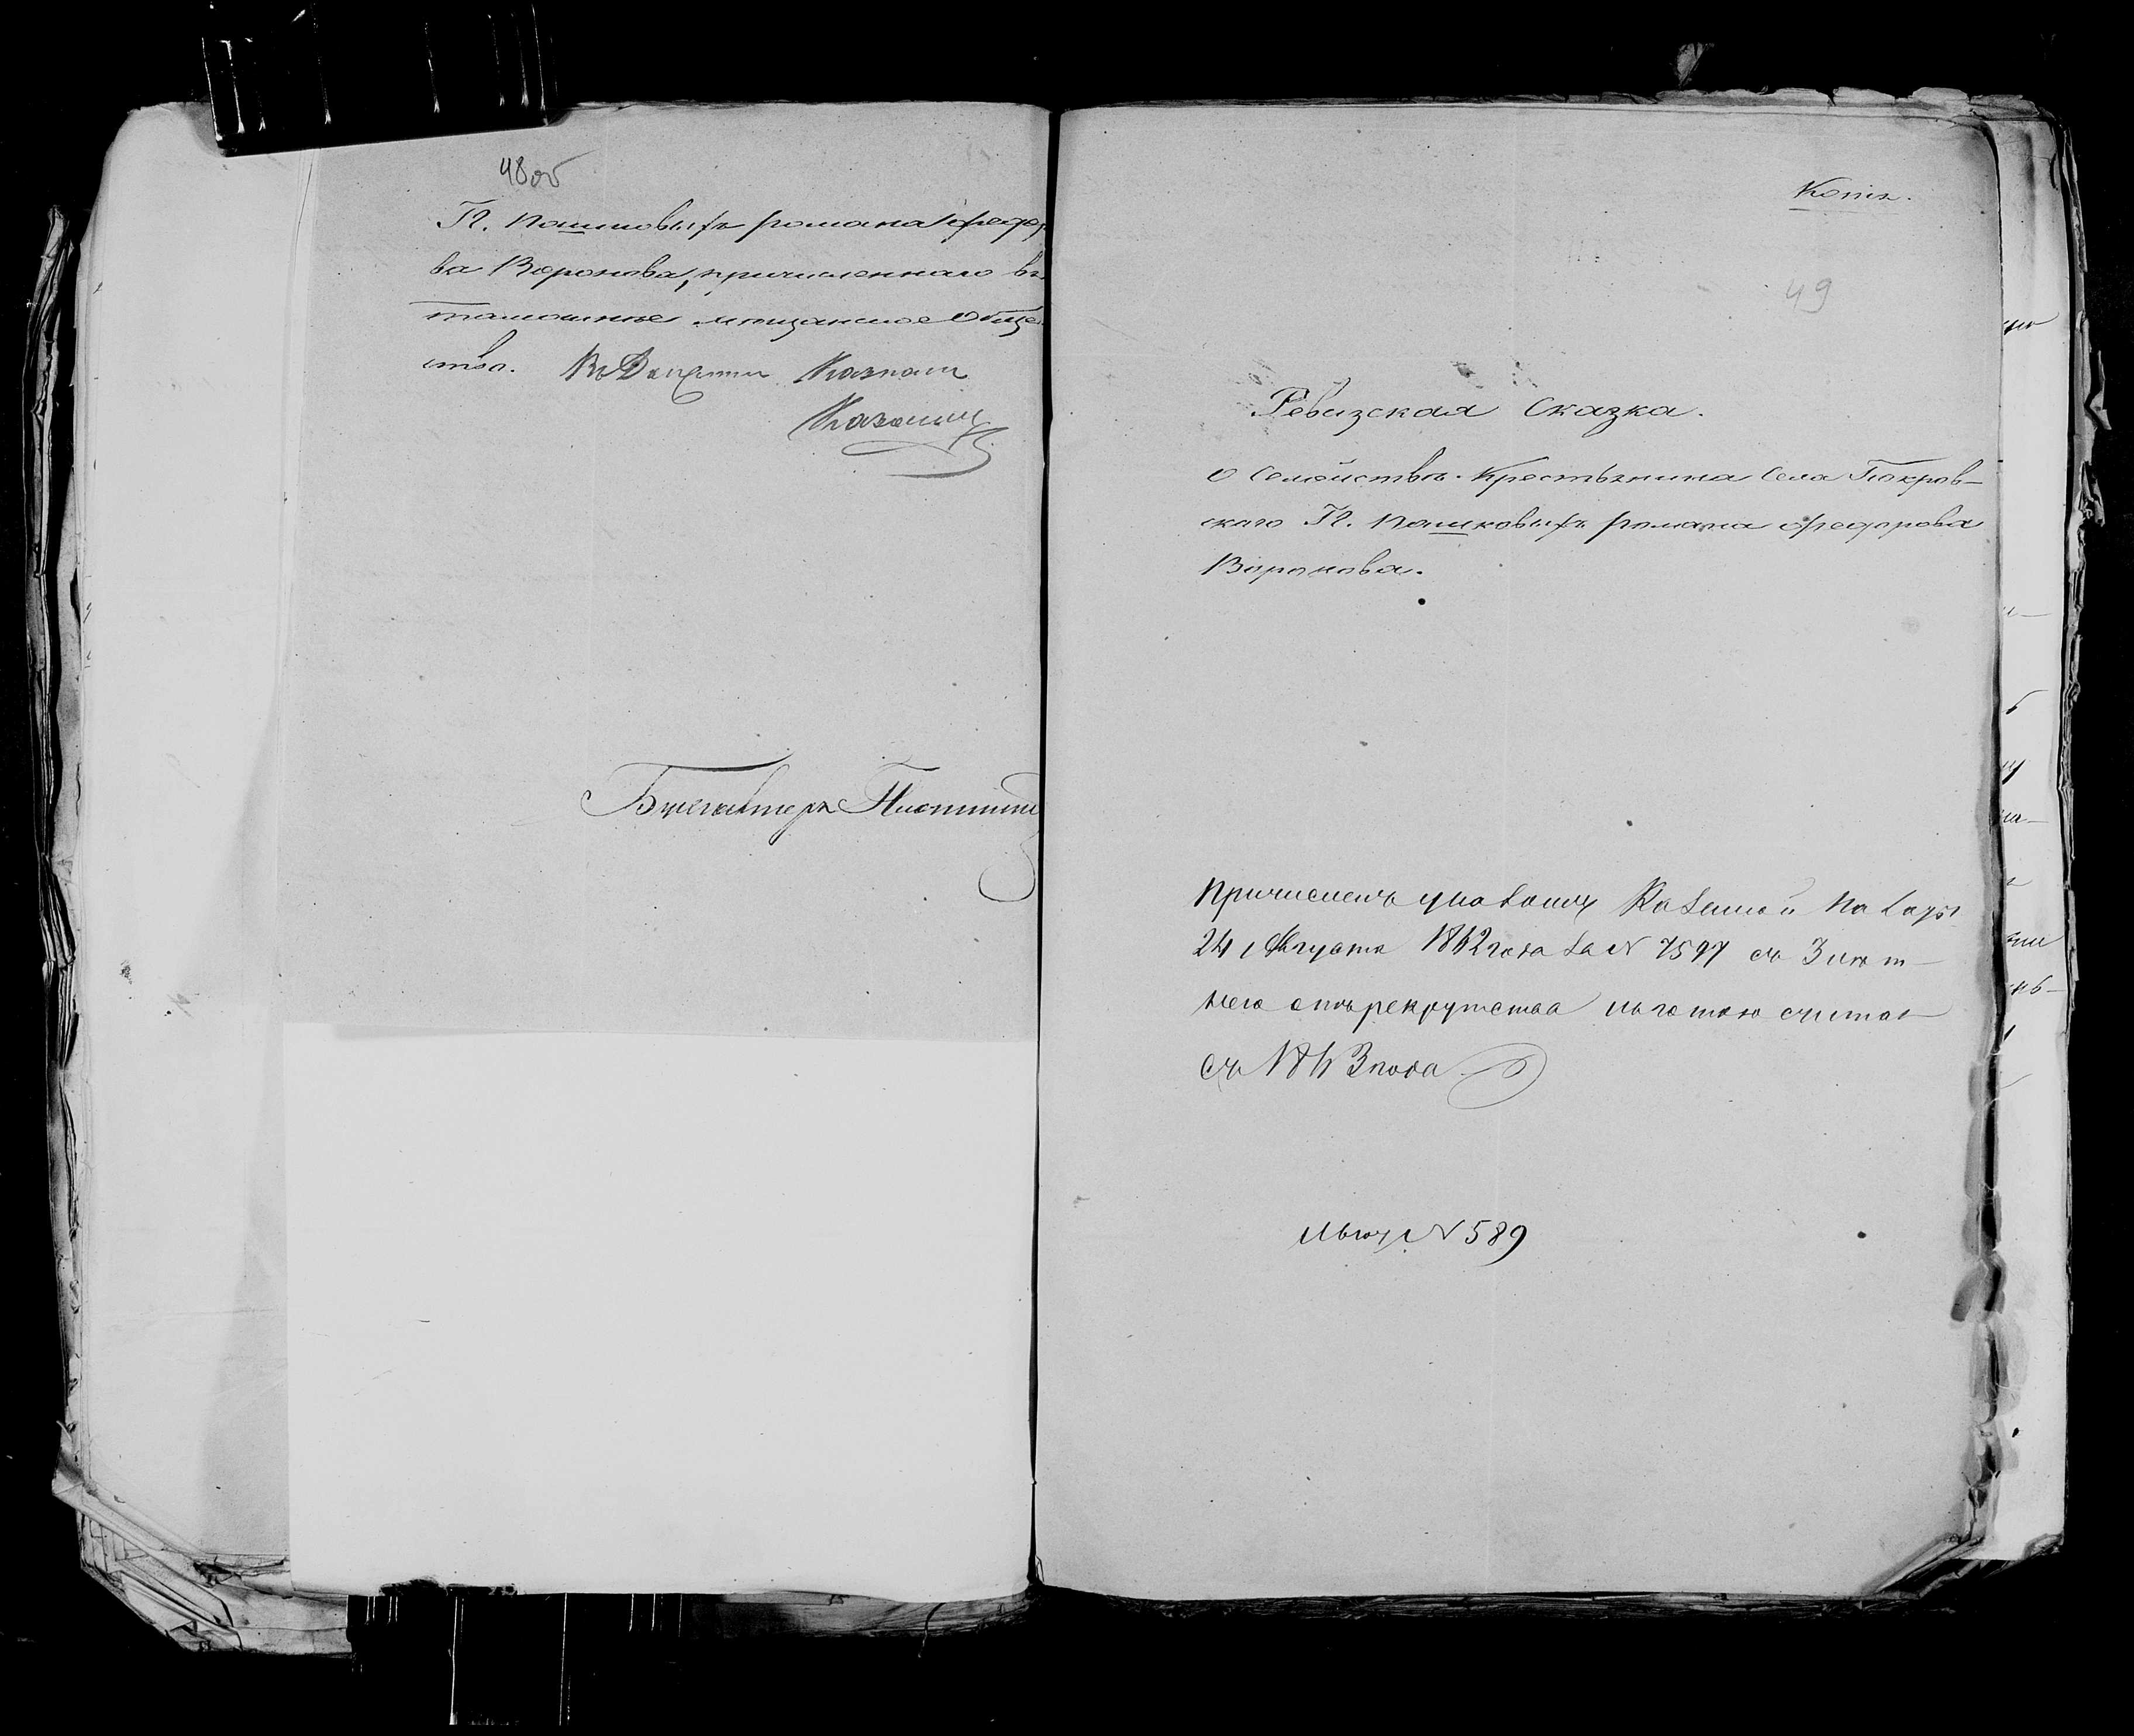 48об
Гг. Пашковыхъ Романа Ѳедор
ва Воронова, причисленнаго въ
тамошнее мѣщанское Обще
ство.
Бухгалтеръ
Копія.
49
Ревизская Сказка.
о Семействѣ Крестьянина Села Покров-
скаго Гг. Пашковыхъ Романа Ѳедорова
Воронова.
Причисленъ указомъ Казенной Палаты
24 Августа 1842 года за № 7597 съ 3 лѣт-
нею отъ рекрутства льготою считая
съ 1843 года
№ 589